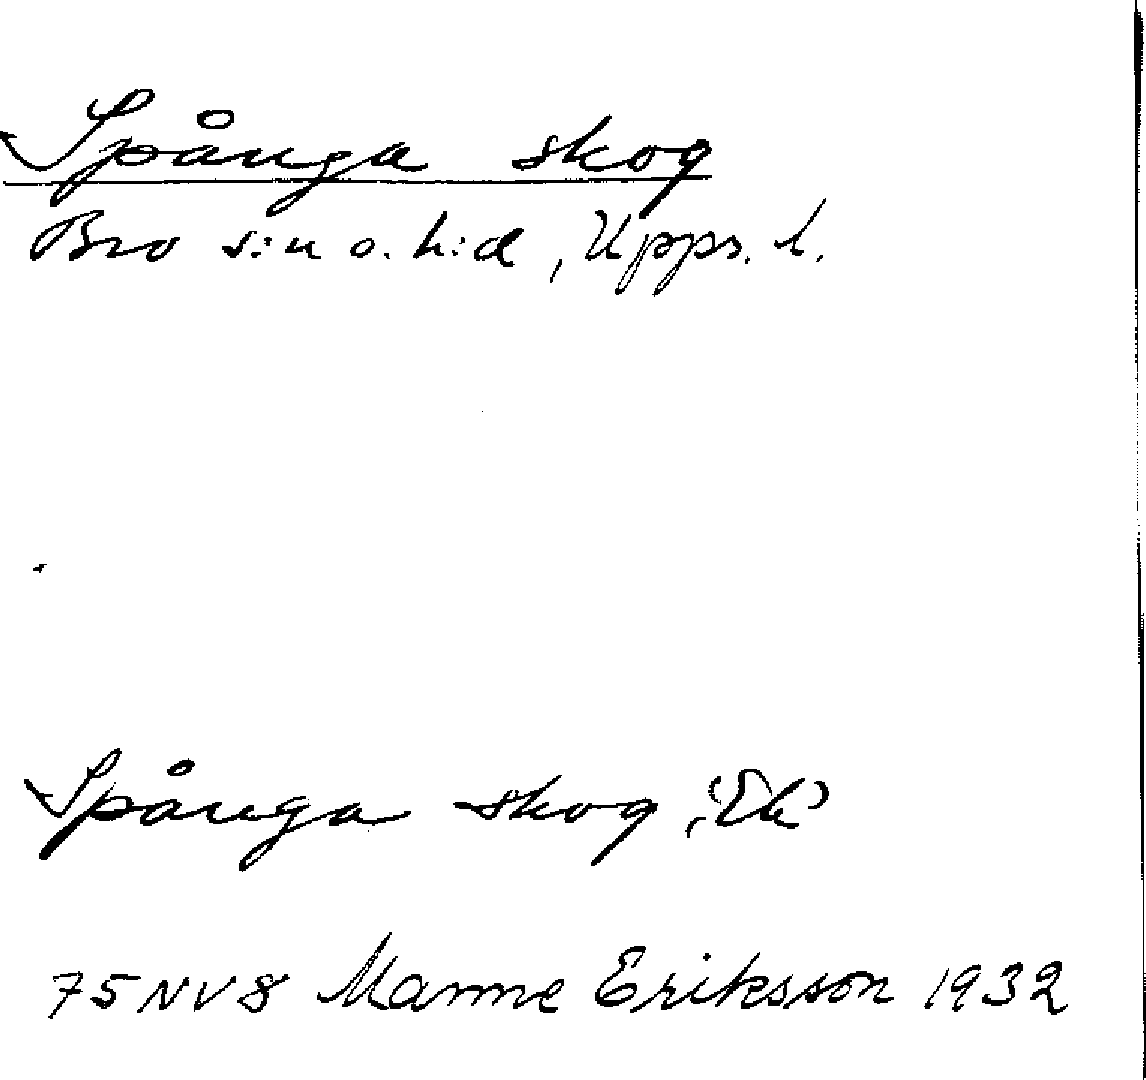 Spånga skog
Bro s:n o. h:d, Upps. l.
Spånga skog, 'Ek'
75NV8 Manne Eriksson 1932